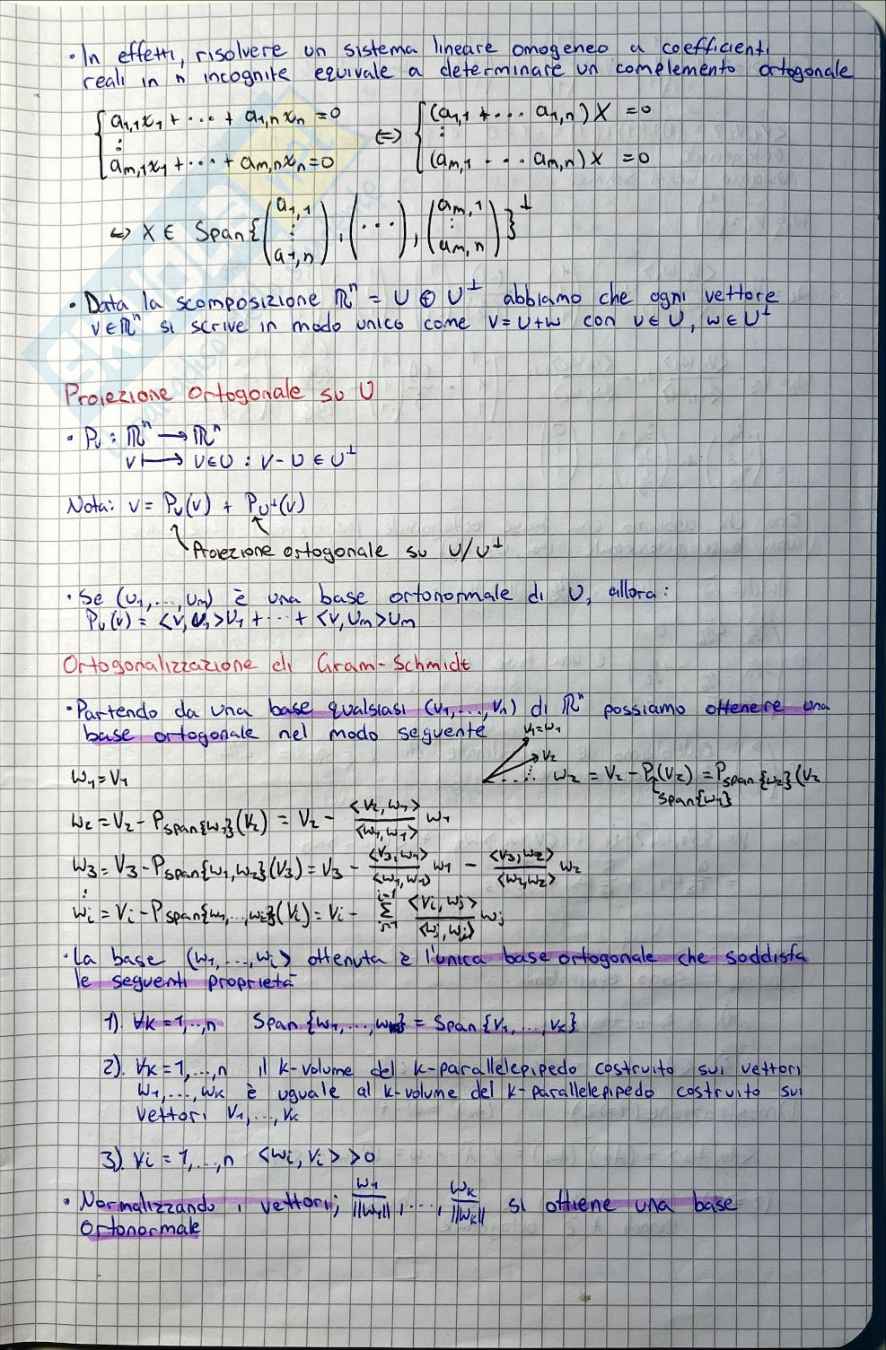 • In effetti, risolvere un sistema lineare omogeneo a coefficienti
reali in n incognite equivale a determinare un complemento ortogonale
{ a₁,₁x₁ + ··· + a₁,ₙxₙ = 0 ⇔ { (a₁,₁ + ··· a₁,ₙ) X = 0
⋮ ⋮
aₘ,₁x₁ + ··· + aₘ,ₙxₙ = 0 (aₘ,₁ - - - aₘ,ₙ) X = 0
⇔ X ∈ Span{ (a₁,₁ ⋮ a₁,ₙ), (···), (aₘ,₁ ⋮ aₘ,ₙ) }^⊥
• Data la scomposizione ℝⁿ = U ⊕ U^⊥ abbiamo che ogni vettore
v ∈ ℝⁿ si scrive in modo unico come v = u + w con u ∈ U, w ∈ U^⊥
Proiezione Ortogonale su U
• P_U : ℝⁿ → ℝⁿ
v ⟼ u ∈ U : v - u ∈ U^⊥
Nota: v = P_U(v) + P_U^⊥(v)
Proiezione ortogonale su U/U^⊥
• Se (u₁, ..., uₘ) è una base ortonormale di U, allora:
P_U(v) = <v, u₁>u₁ + ··· + <v, uₘ>uₘ
Ortogonalizzazione di Gram-Schmidt
• Partendo da una base qualsiasi (v₁, ..., vₙ) di ℝⁿ possiamo ottenere una
base ortogonale nel modo seguente
v₁ = w₁
v₂
w₁ = v₁
w₂ = v₂ - P(v₂) = P_span{w₂}(v₂
span{w₁}
w₂ = v₂ - P_span{w₁}(v₂) = v₂ - <v₂, w₁>/<w₁, w₁> w₁
w₃ = v₃ - P_span{w₁, w₂}(v₃) = v₃ - <v₃, w₁>/<w₁, w₁> w₁ - <v₃, w₂>/<w₂, w₂> w₂
⋮
wᵢ = vᵢ - P_span{w₁, ..., wᵢ}(vᵢ) = vᵢ - Σ_{j=1}^{i-1} <vᵢ, wⱼ>/<wⱼ, wⱼ> wⱼ
• La base (w₁, ..., wᵢ) ottenuta è l'unica base ortogonale che soddisfa
le seguenti proprietà
1). ∀k = 1, .., n Span {w₁, ..., wₖ} = Span {v₁, ..., vₖ}
2). ∀k = 1, ..., n il k-volume del k-parallelepipedo costruito sui vettori
w₁, ..., wₖ è uguale al k-volume del k-parallelepipedo costruito sui
vettori v₁, ..., vₖ
3). ∀i = 1, ..., n <wᵢ, vᵢ> > 0
• Normalizzando i vettori; w₁/||w₁||, ..., wₖ/||wₖ|| si ottiene una base
ortonormale